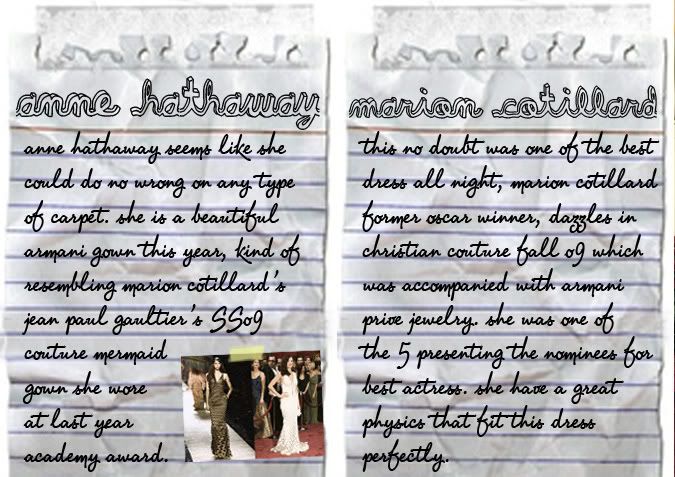 anne hathaway
anne hathaway seems like she
could do no wrong on any type
of carpet. she is a beautiful
armani gown this year, kind of
resembling marion cotillard's
jean paul gaultier's SS09
couture mermaid
gown she wore
at last year
academy award.
marion cotillard
this no doubt was one of the best
dress all night, marion cotillard
former oscar winner, dazzles in
christian couture fall 09 which
was accompanied with armani
prive jewelry. she was one of
the 5 presenting the nominees for
best actress. she have a great
physics that fit this dress
perfectly.